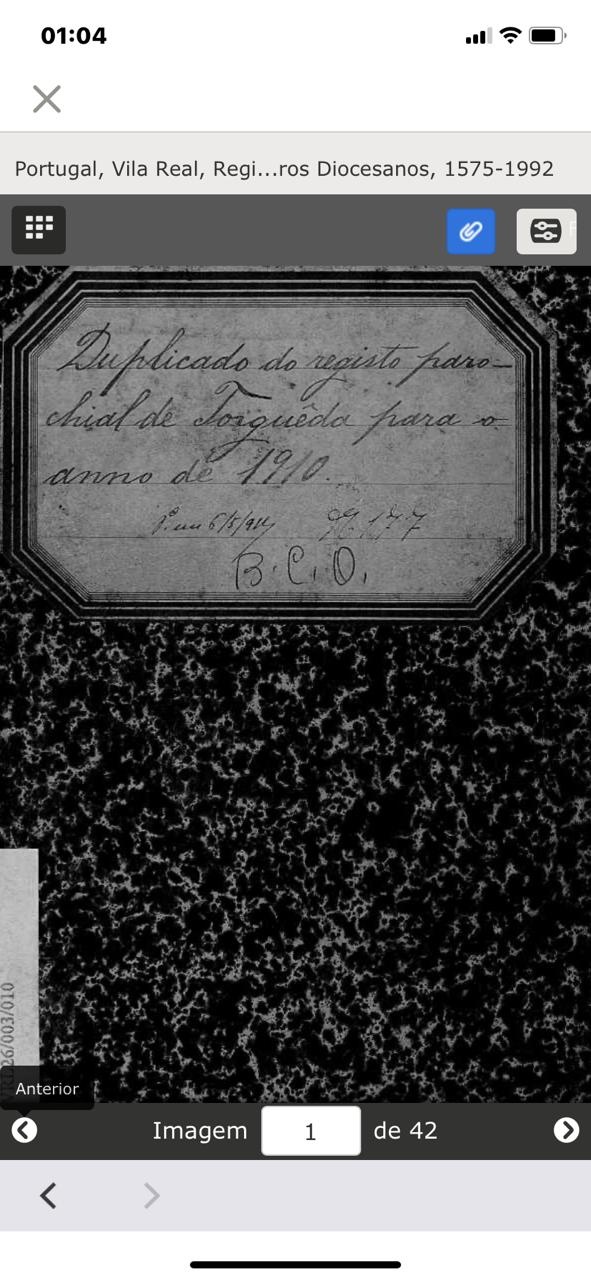 01:04
Portugal, Vila Real, Regi...ros Diocesanos, 1575-1992
Duplicado do registo paro-
chial de Torguêda para o
anno de 1910.
B. C. O.
26/003/010
Anterior
Imagem 1 de 42